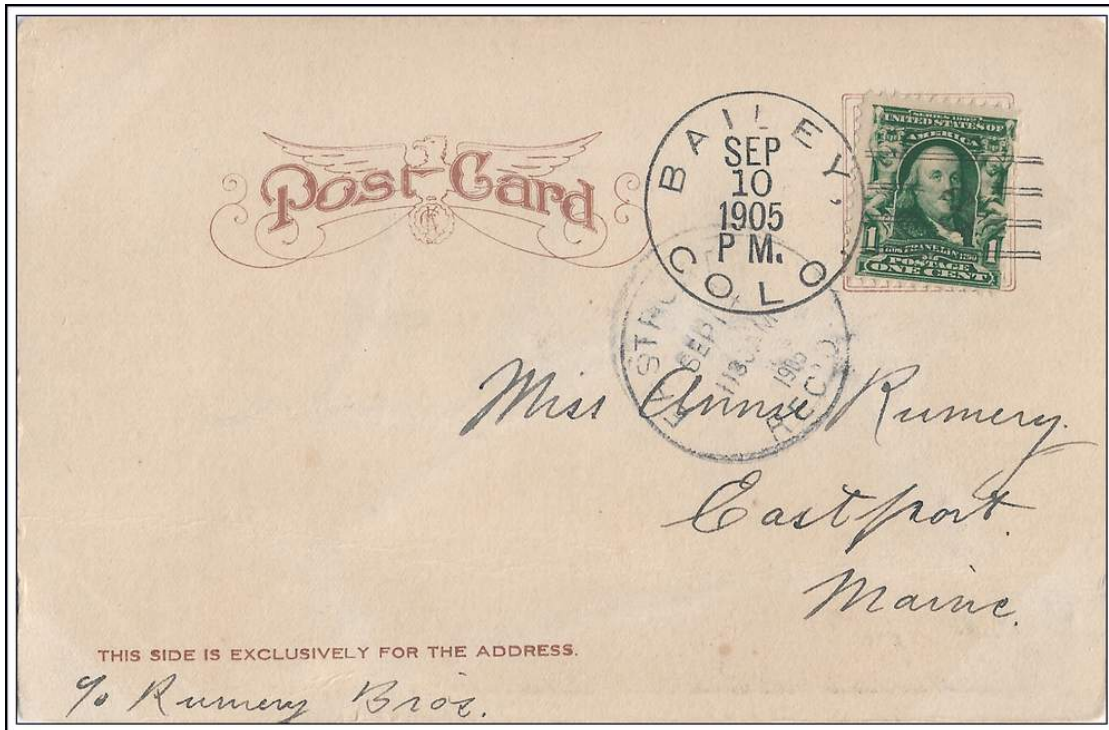 Post Card
BAILEY,
SEP
10
1905
P M.
COLO
SERIES 1902
UNITED STATES OF
AMERICA
1 FRANKLIN 1
POSTAGE
ONE CENT
SEP
1905
REC'D
Miss Annie Rumery.
Eastport.
Maine.
THIS SIDE IS EXCLUSIVELY FOR THE ADDRESS.
c/o Rumery Bros.